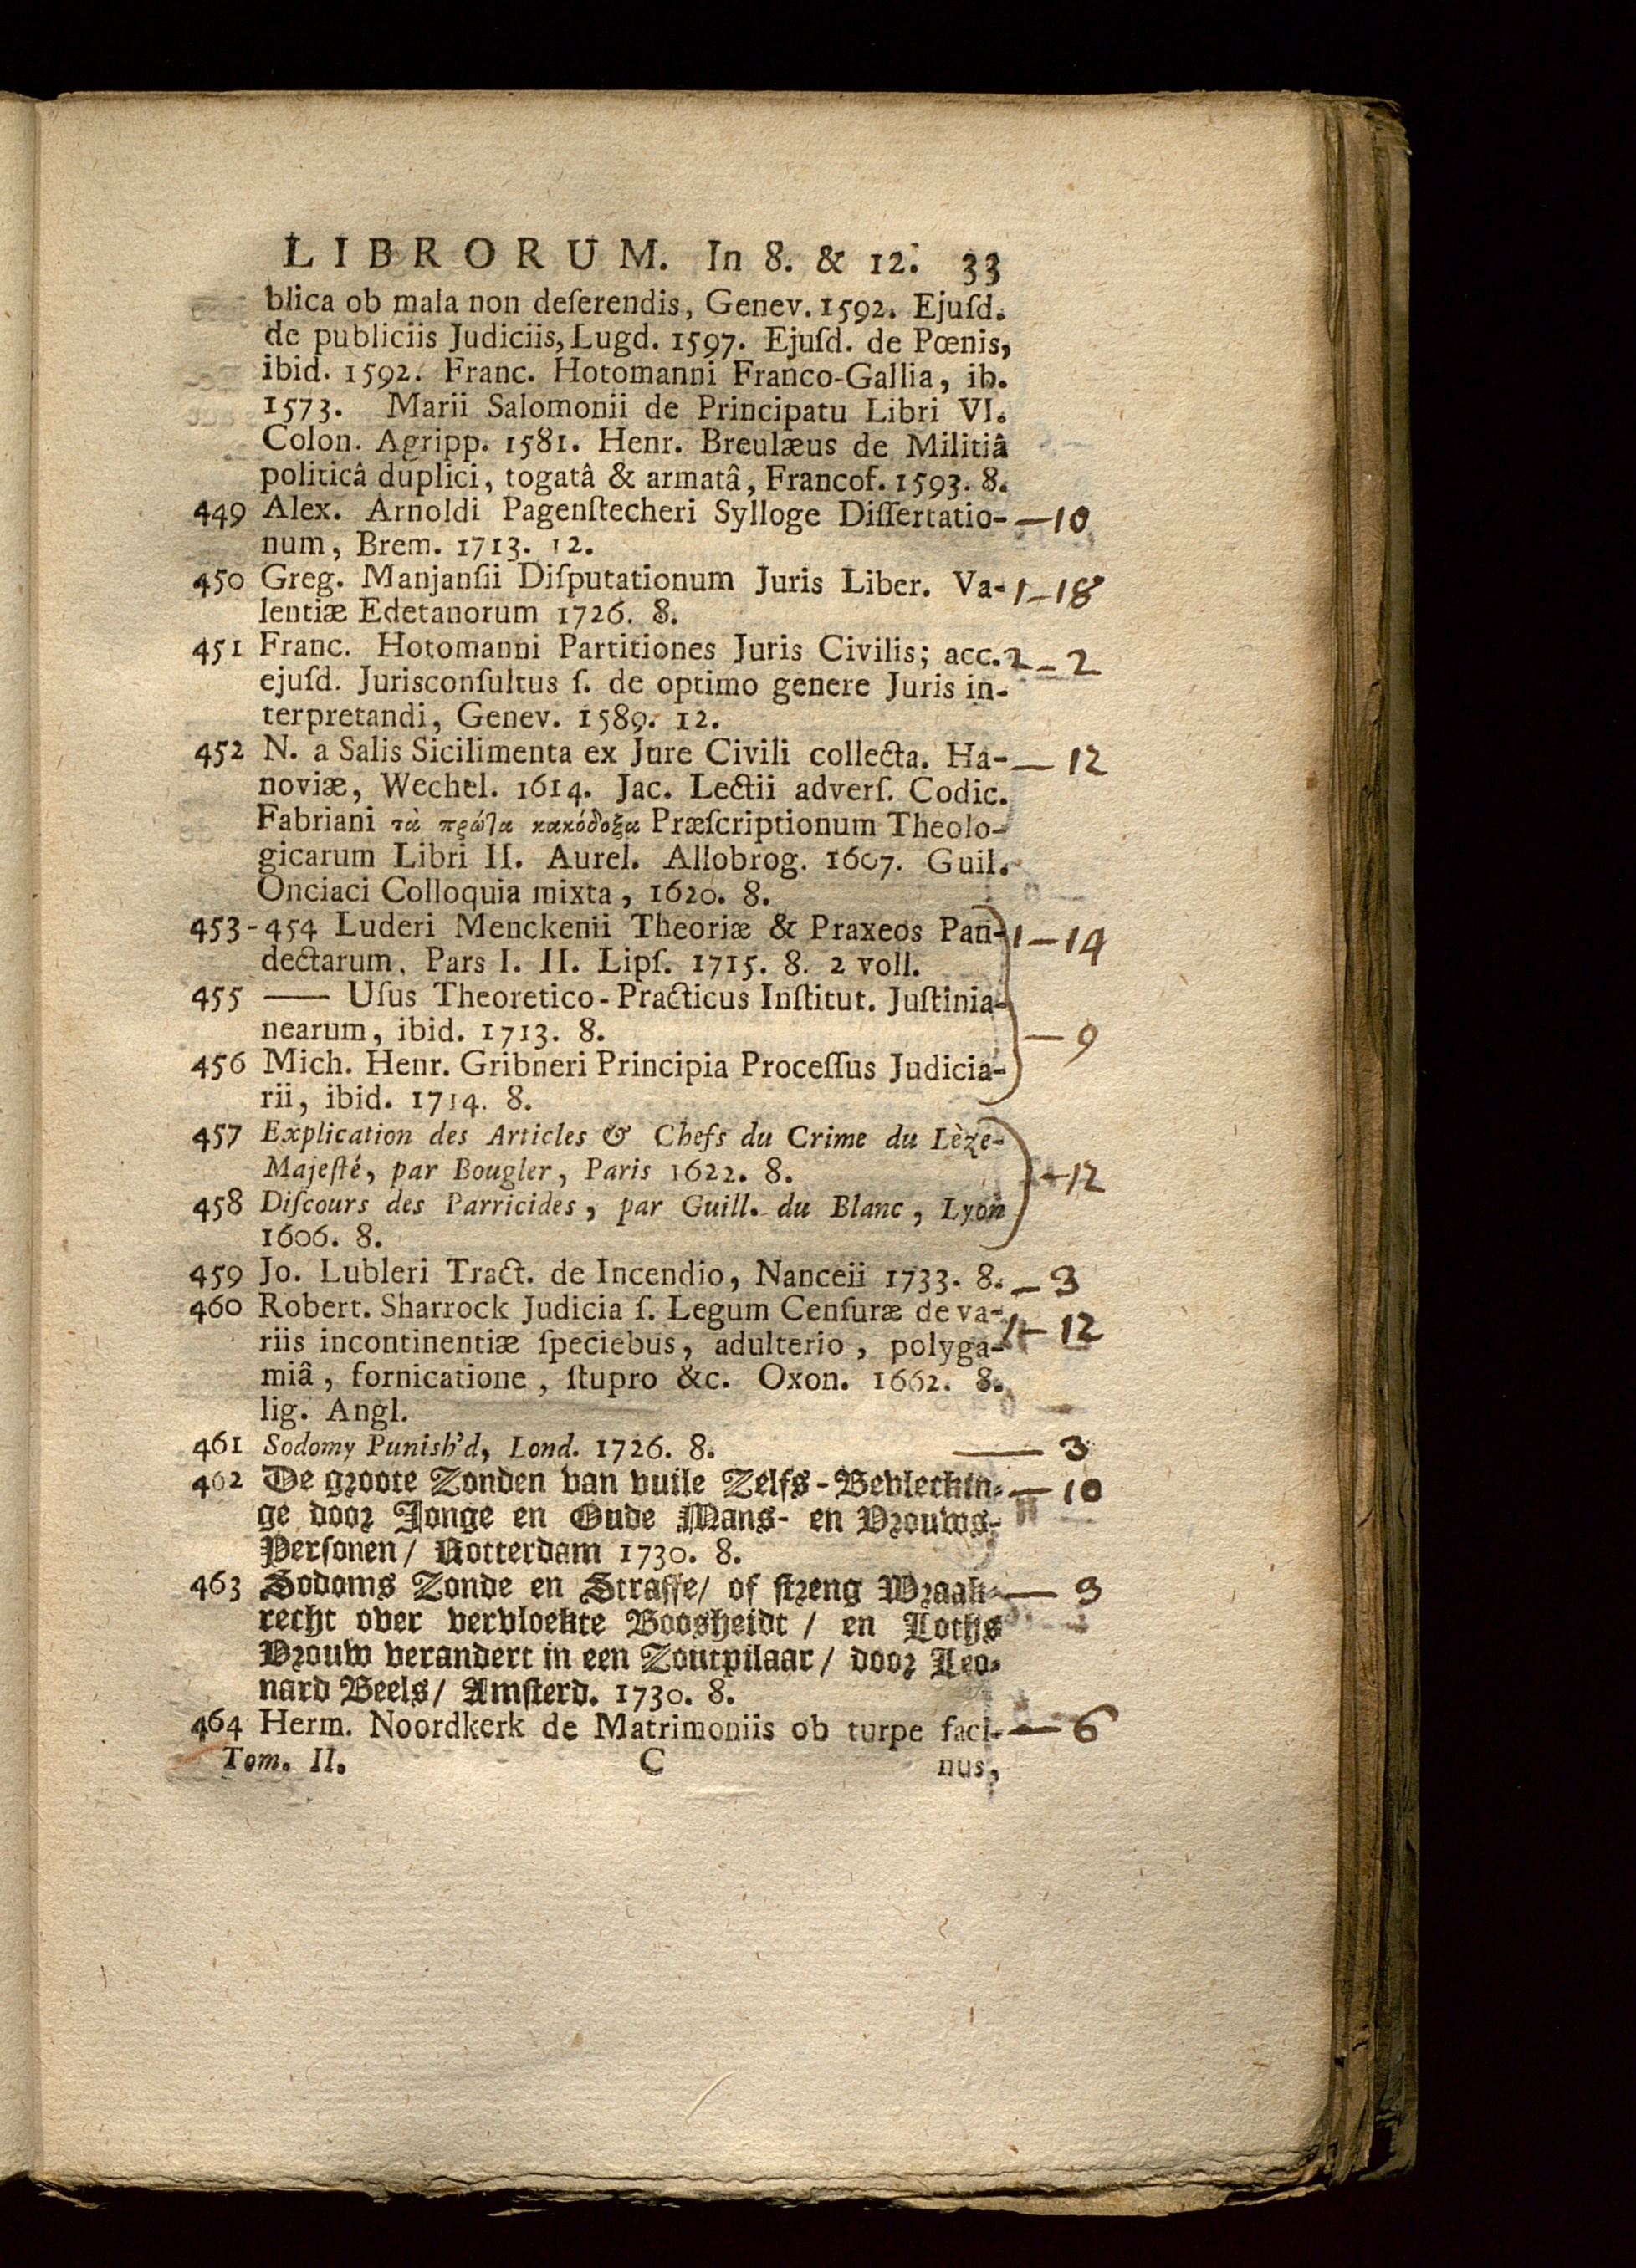 LIBRORUM. In 8. & 12. 33
blica ob mala non deſerendis, Genev. 1592. Ejuſd.
de publiciis Judiciis, Lugd. 1597. Ejuſd. de Pœnis,
ibid. 1592. Franc. Hotomanni Franco-Gallia, ib.
1573. Marii Salomonii de Principatu Libri VI.
Colon. Agripp. 1581. Henr. Breulæus de Militiâ
politicâ duplici, togatâ & armatâ, Francof. 1593. 8.
449 Alex. Arnoldi Pagenſtecheri Sylloge Diſſertatio- —10
num, Brem. 1713. 12.
450 Greg. Manjanſii Diſputationum Juris Liber. Va- 1—18
lentiæ Edetanorum 1726. 8.
451 Franc. Hotomanni Partitiones Juris Civilis; acc. 2—2
ejuſd. Jurisconſultus ſ. de optimo genere Juris in-
terpretandi, Genev. 1589. 12.
452 N. a Salis Sicilimenta ex Jure Civili collecta. Ha- —12
noviæ, Wechel. 1614. Jac. Lectii adverſ. Codic.
Fabriani τὰ πρῶτα κακόδοξα Præſcriptionum Theolo-
gicarum Libri II. Aurel. Allobrog. 1607. Guil.
Onciaci Colloquia mixta, 1620. 8.
453-454 Luderi Menckenii Theoriæ & Praxeos Pan- 1—14
dectarum, Pars I. II. Lipſ. 1715. 8. 2 voll.
455 —— Uſus Theoretico-Practicus Inſtitut. Juſtinia-
nearum, ibid. 1713. 8. —9
456 Mich. Henr. Gribneri Principia Proceſſus Judicia-
rii, ibid. 1714. 8.
457 Explication des Articles & Chefs du Crime du Lèze-
Majeſté, par Bougler, Paris 1622. 8. —12
458 Diſcours des Parricides, par Guill. du Blanc, Lyon
1606. 8.
459 Jo. Lubleri Tract. de Incendio, Nanceii 1733. 8. —3
460 Robert. Sharrock Judicia ſ. Legum Cenſuræ de va- 1—12
riis incontinentiæ ſpeciebus, adulterio, polyga-
miâ, fornicatione, ſtupro &c. Oxon. 1662. 8.
lig. Angl.
461 Sodomy Punish'd, Lond. 1726. 8. —3
462 De groote Zonden van vuile Zelfs-Bevleckin- —10
ge door Jonge en Oude Mans- en Vrouws-
Perſonen/ Rotterdam 1730. 8.
463 Sodoms Zonde en Straffe/ of ſtreng Wraak- —9
recht over vervloekte Boosheidt/ en Loths
Vrouw verandert in een Zoutpilaar/ door Leo-
nard Beels/ Amſterd. 1730. 8.
464 Herm. Noordkerk de Matrimoniis ob turpe faci- —6
Tom. II. C nus,